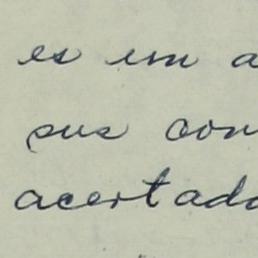 es un a
sus con
acertado